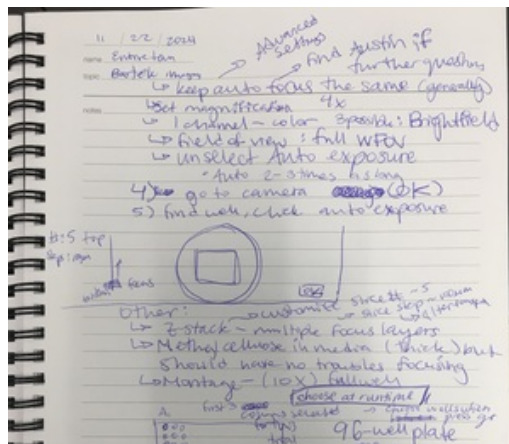 11 / 22 / 2024
name Entire team
topic images
Advanced settings
find Austin if
further questions
↳ keep auto focus the same (generally)
notes
↳ Set magnification 4x
↳ 1 channel - color 3 possible: Brightfield
↳ field of view: full WFOV
↳ unselect Auto exposure
• Auto 2-3 times as long
4) go to camera (OK)
5) find well, click auto exposure
#: 5 top
step:
bottom focus
OK
Other:
customize slice # ~5
slice step ~
↳ Z stack - multiple focus layers
↳ Methylcellulose in media (thick) but
should have no troubles focusing
↳ Montage - (10x) full well
choose at runtime
A. first 3
columns selected
for
96-well plate